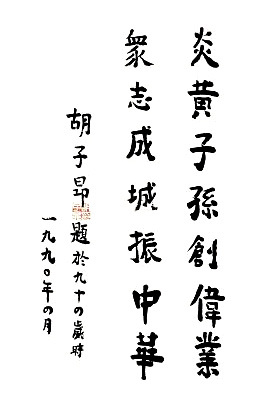 炎黄子孫創偉業
衆志成城振中華
胡子昂題於九十の歲時
一九九〇年の月